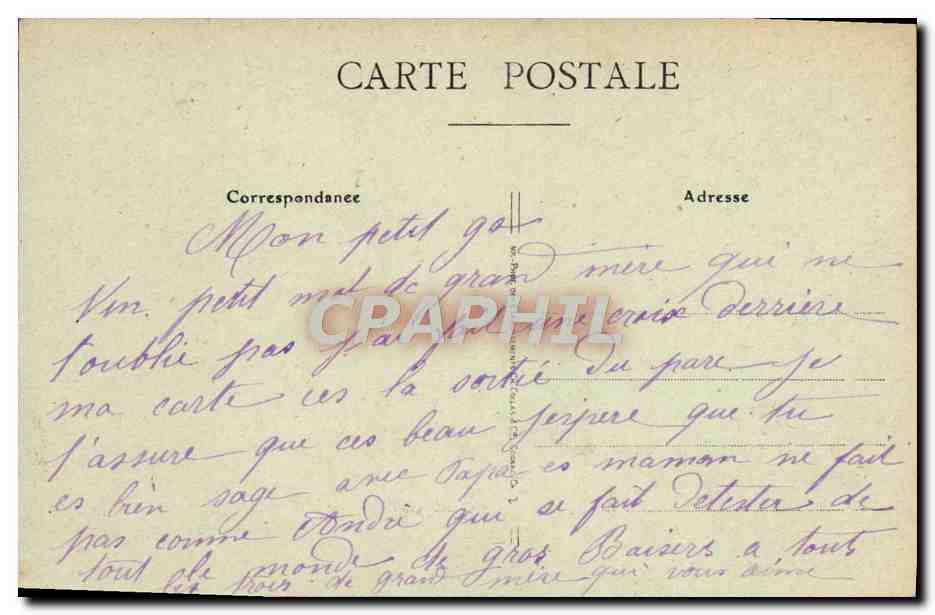 CARTE POSTALE
Correspondance
Adresse
Mon petit go
Un petit mot de grand mère qui ne
t'oublie pas j'ai fait une croix derrière
ma carte ces la sortie du parc Je
t'assure que ces beau Jespere que tu
es bien sage avec Papa es maman ne fait
pas comme André qui se fait detester de
tout le monde de gros Baisers a touts
les trois de grand mère qui vous aime
CPARPHIL